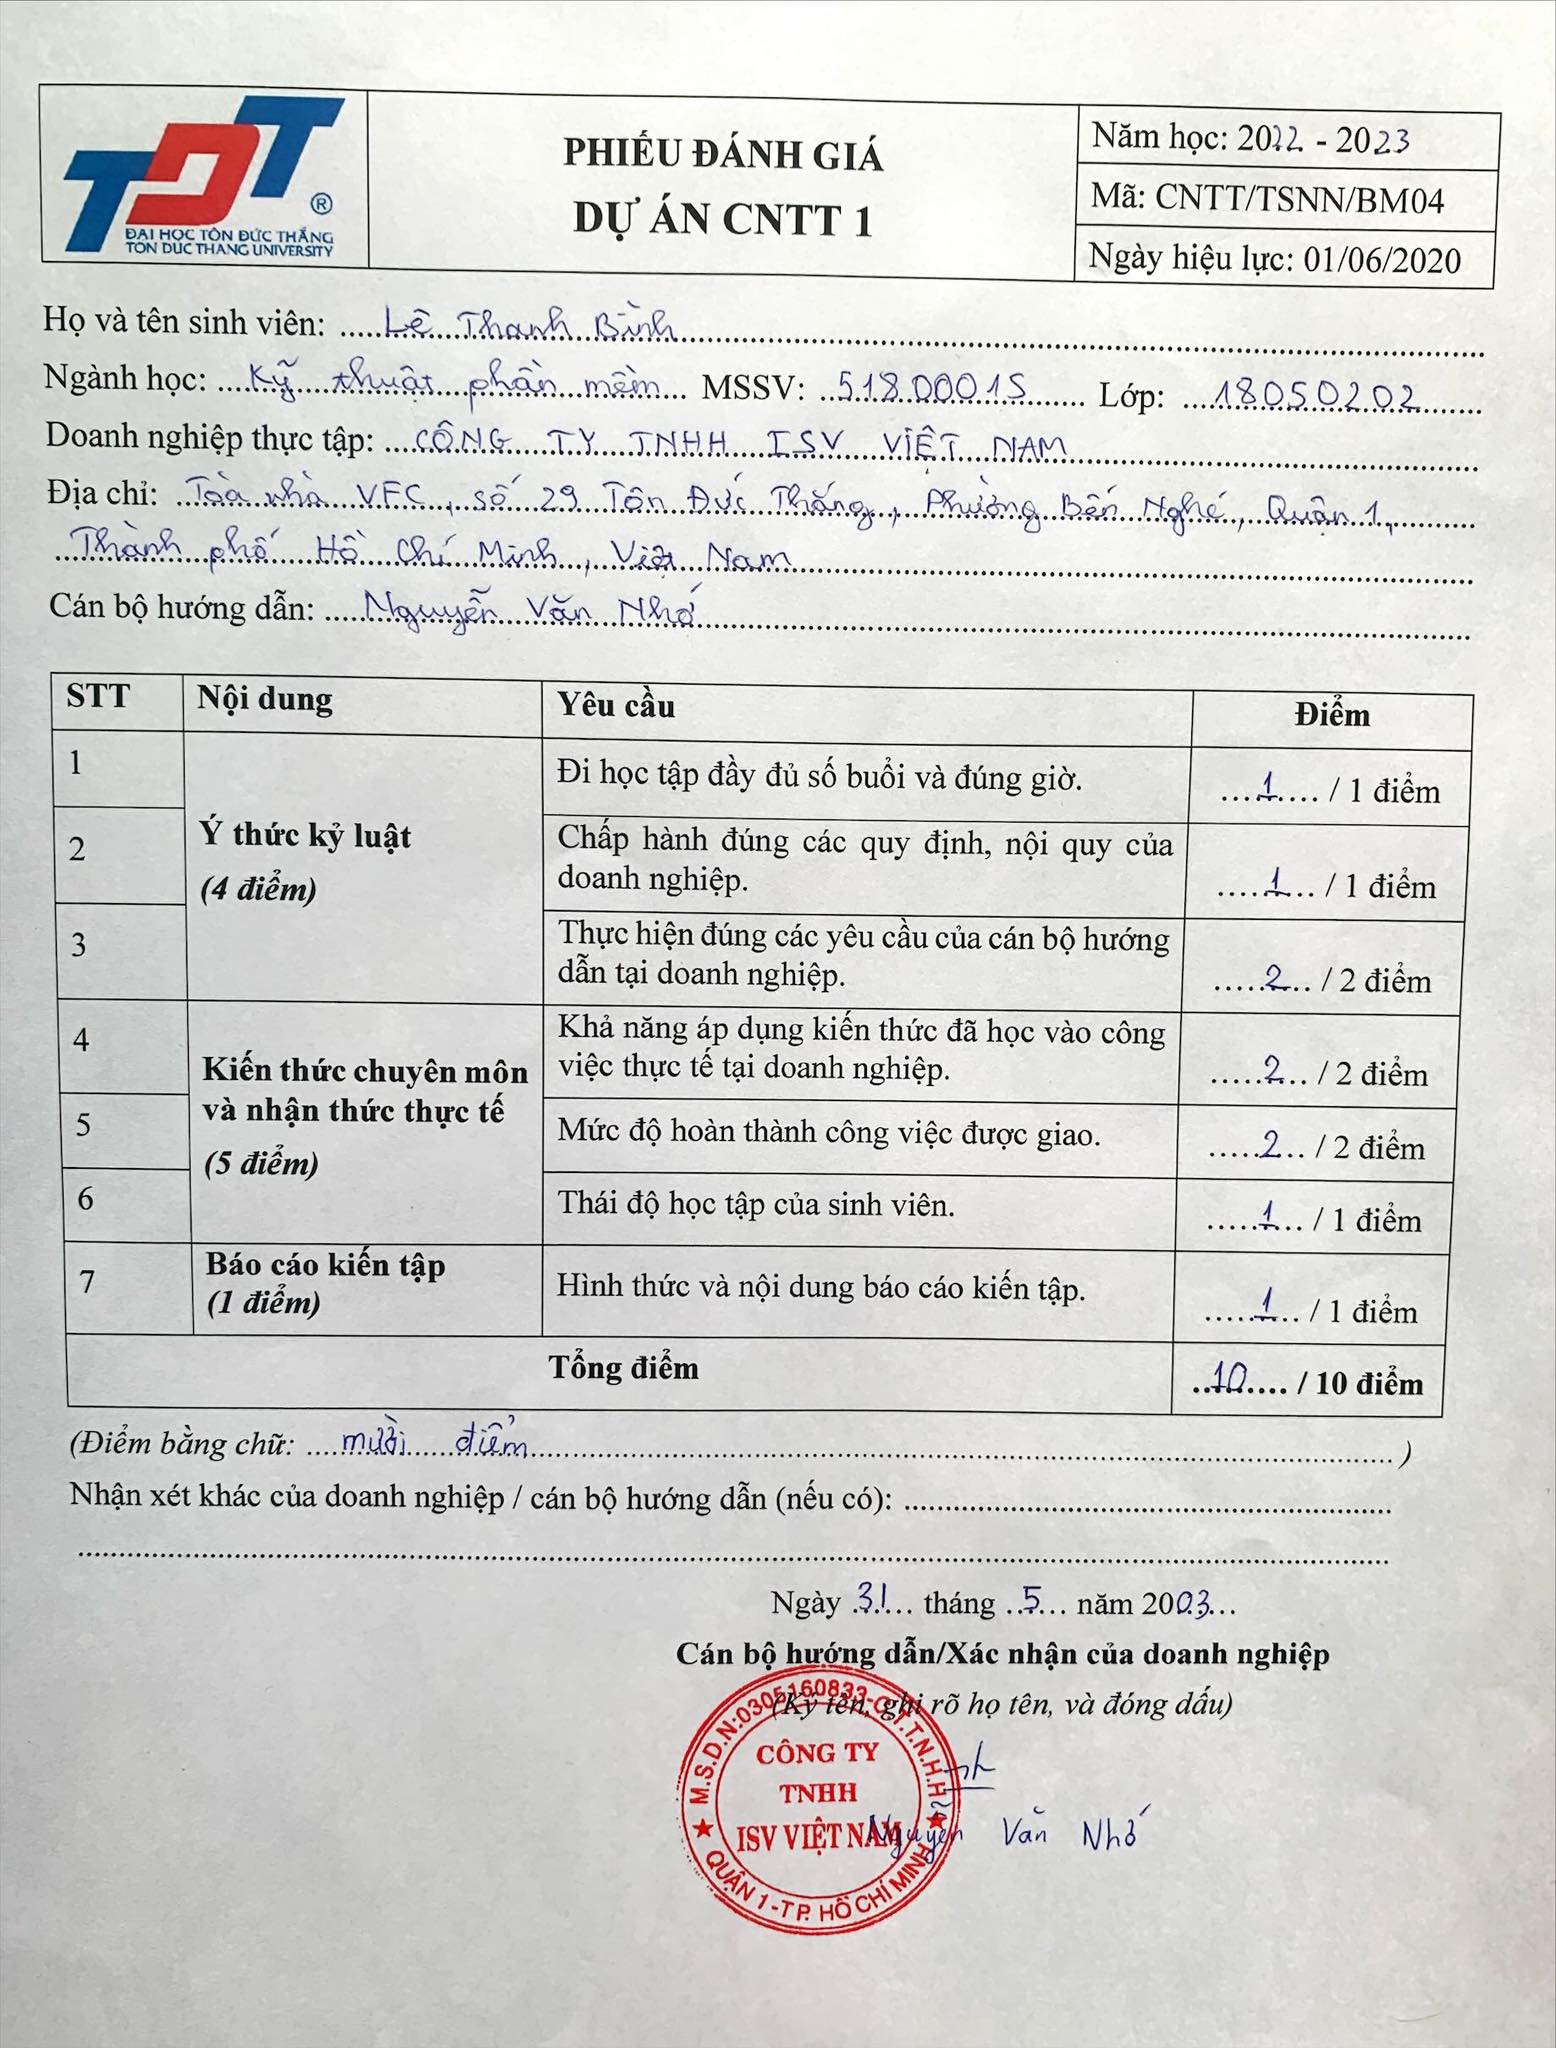 TDT ®
ĐẠI HỌC TÔN ĐỨC THẮNG
TON DUC THANG UNIVERSITY
PHIẾU ĐÁNH GIÁ
DỰ ÁN CNTT 1
Năm học: 2022 - 2023
Mã: CNTT/TSNN/BM04
Ngày hiệu lực: 01/06/2020
Họ và tên sinh viên: Lê Thanh Bình
Ngành học: Kỹ thuật phần mềm MSSV: 51800015 Lớp: 18050202
Doanh nghiệp thực tập: CÔNG TY TNHH ISV VIỆT NAM
Địa chỉ: Toà nhà VFC, số 29 Tôn Đức Thắng, Phường Bến Nghé, Quận 1,
Thành phố Hồ Chí Minh, Việt Nam
Cán bộ hướng dẫn: Nguyễn Văn Nhớ
STT Nội dung Yêu cầu Điểm
1 Đi học tập đầy đủ số buổi và đúng giờ. 1 / 1 điểm
Ý thức kỷ luật
(4 điểm)
2 Chấp hành đúng các quy định, nội quy của
doanh nghiệp. 1 / 1 điểm
3 Thực hiện đúng các yêu cầu của cán bộ hướng
dẫn tại doanh nghiệp. 2 / 2 điểm
4 Khả năng áp dụng kiến thức đã học vào công
việc thực tế tại doanh nghiệp. 2 / 2 điểm
Kiến thức chuyên môn
và nhận thức thực tế
(5 điểm)
5 Mức độ hoàn thành công việc được giao. 2 / 2 điểm
6 Thái độ học tập của sinh viên. 1 / 1 điểm
7 Báo cáo kiến tập
(1 điểm)
Hình thức và nội dung báo cáo kiến tập. 1 / 1 điểm
Tổng điểm 10 / 10 điểm
(Điểm bằng chữ: mười điểm )
Nhận xét khác của doanh nghiệp / cán bộ hướng dẫn (nếu có):
Ngày 31 tháng 5 năm 2003
Cán bộ hướng dẫn/Xác nhận của doanh nghiệp
(Ký tên, ghi rõ họ tên, và đóng dấu)
M.S.D.N:0305160833-C.T.T.N.H.H
CÔNG TY
TNHH
ISV VIỆT NAM
QUẬN 1-TP. HỒ CHÍ MINH
Nguyễn Văn Nhớ